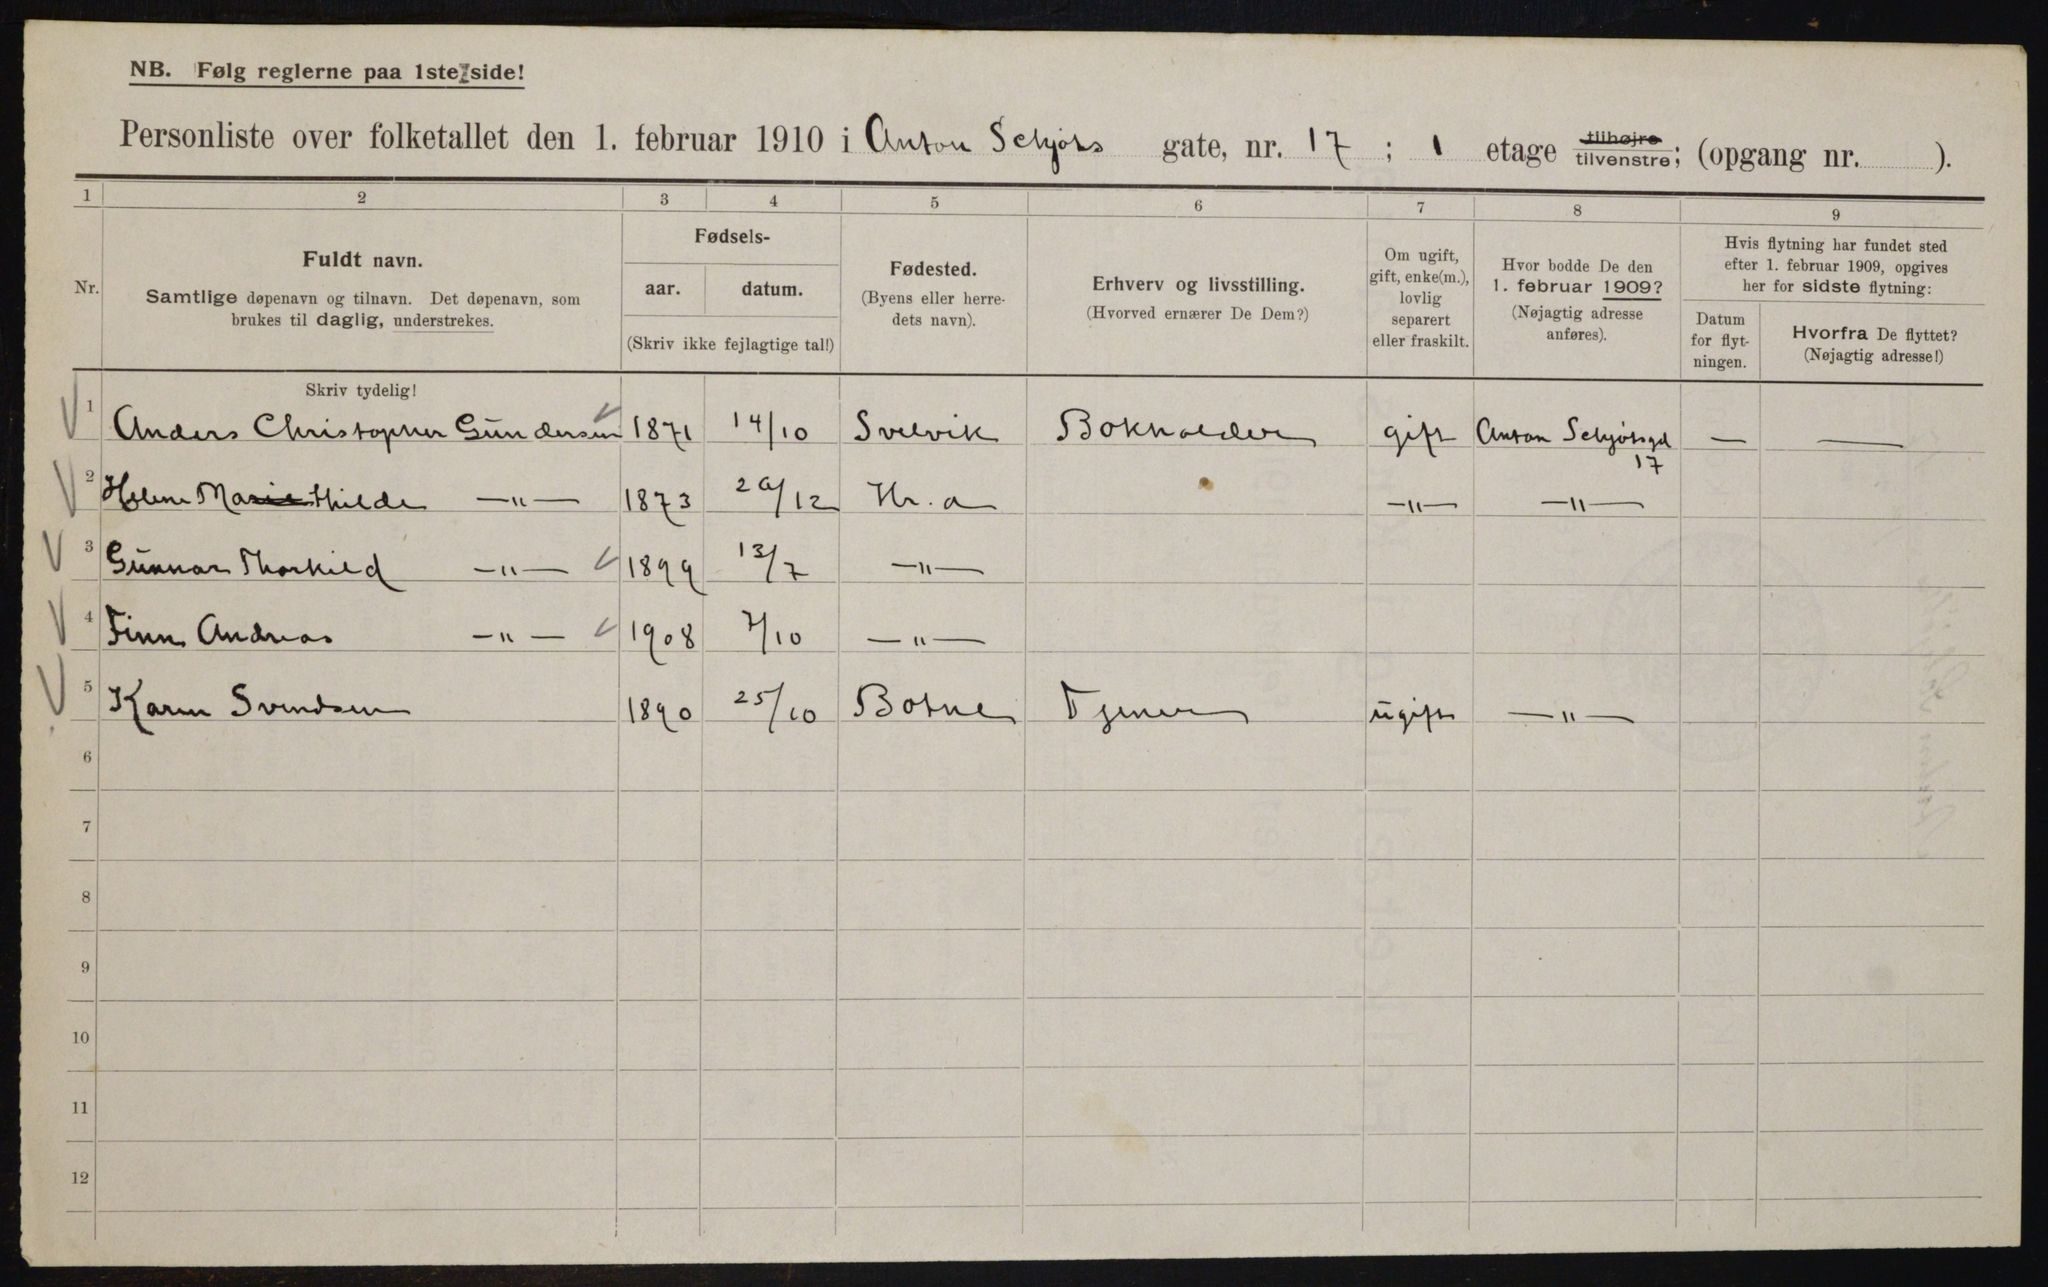 NB. Følg reglerne paa 1ste side!
Personliste over folketallet den 1. februar 1910 i Anton Schjøts gate, nr. 17; 1 etage tilhøjre tilvenstre; (opgang nr. ).
1 2 3 4 5 6 7 8 9
Nr.
Fuldt navn.
Samtlige døpenavn og tilnavn. Det døpenavn, som
brukes til daglig, understrekes.
Fødsels-
aar. datum.
(Skriv ikke fejlagtige tal!)
Fødested.
(Byens eller herre-
dets navn).
Erhverv og livsstilling.
(Hvorved ernærer De Dem?)
Om ugift,
gift, enke(m.),
lovlig
separert
eller fraskilt.
Hvor bodde De den
1. februar 1909?
(Nøjagtig adresse
anføres).
Hvis flytning har fundet sted
efter 1. februar 1909, opgives
her for sidste flytning:
Datum
for flyt-
ningen.
Hvorfra De flyttet?
(Nøjagtig adresse!)
Skriv tydelig!
1 Anders Christopher Gundersen 1871 14/10 Svelvik Bokholder gift Anton Schjøtsgd 17 — —
2 Helene Mathilde —"— 1873 29/12 Kr.a —"— —"—
3 Gunnar Thorkild —"— 1899 13/7 —"—
4 Finn Andreas —"— 1908 7/10 —"—
5 Karen Svendsen 1890 25/10 Botne Tjener ugift —"—
6
7
8
9
10
11
12